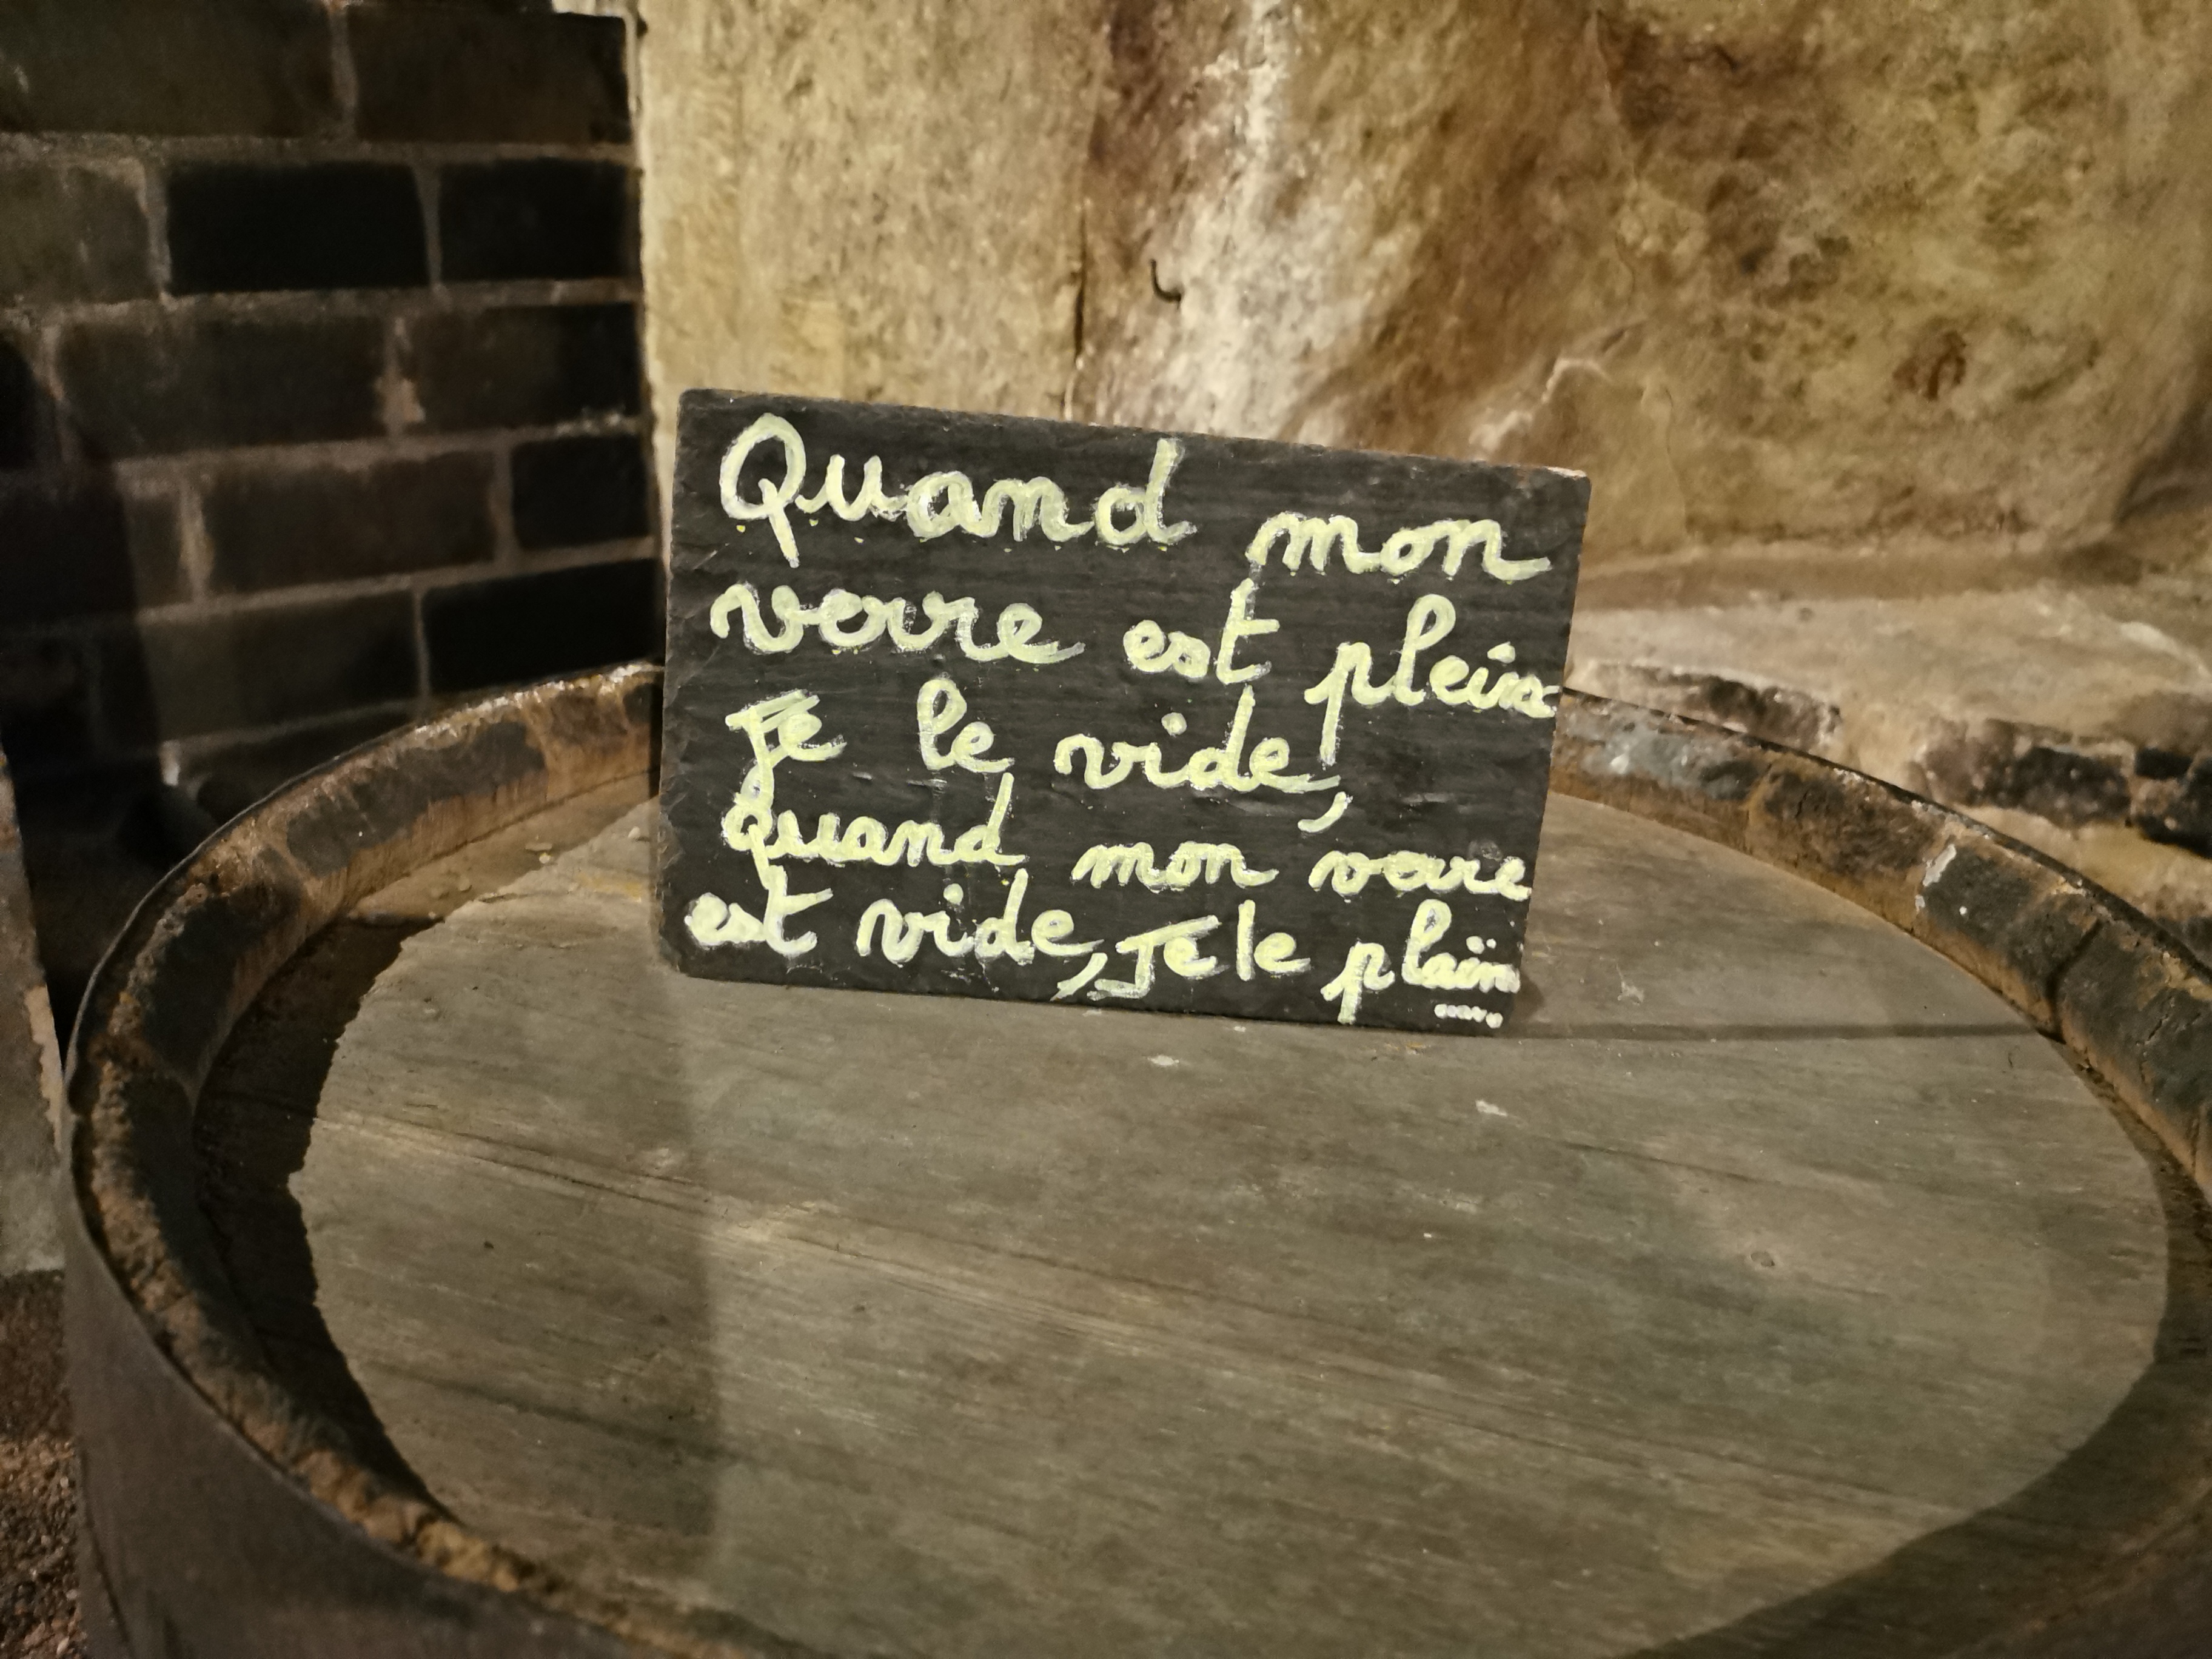 Quand mon
verre est plein
Je le vide,
quand mon verre
est vide, Je le plain
....